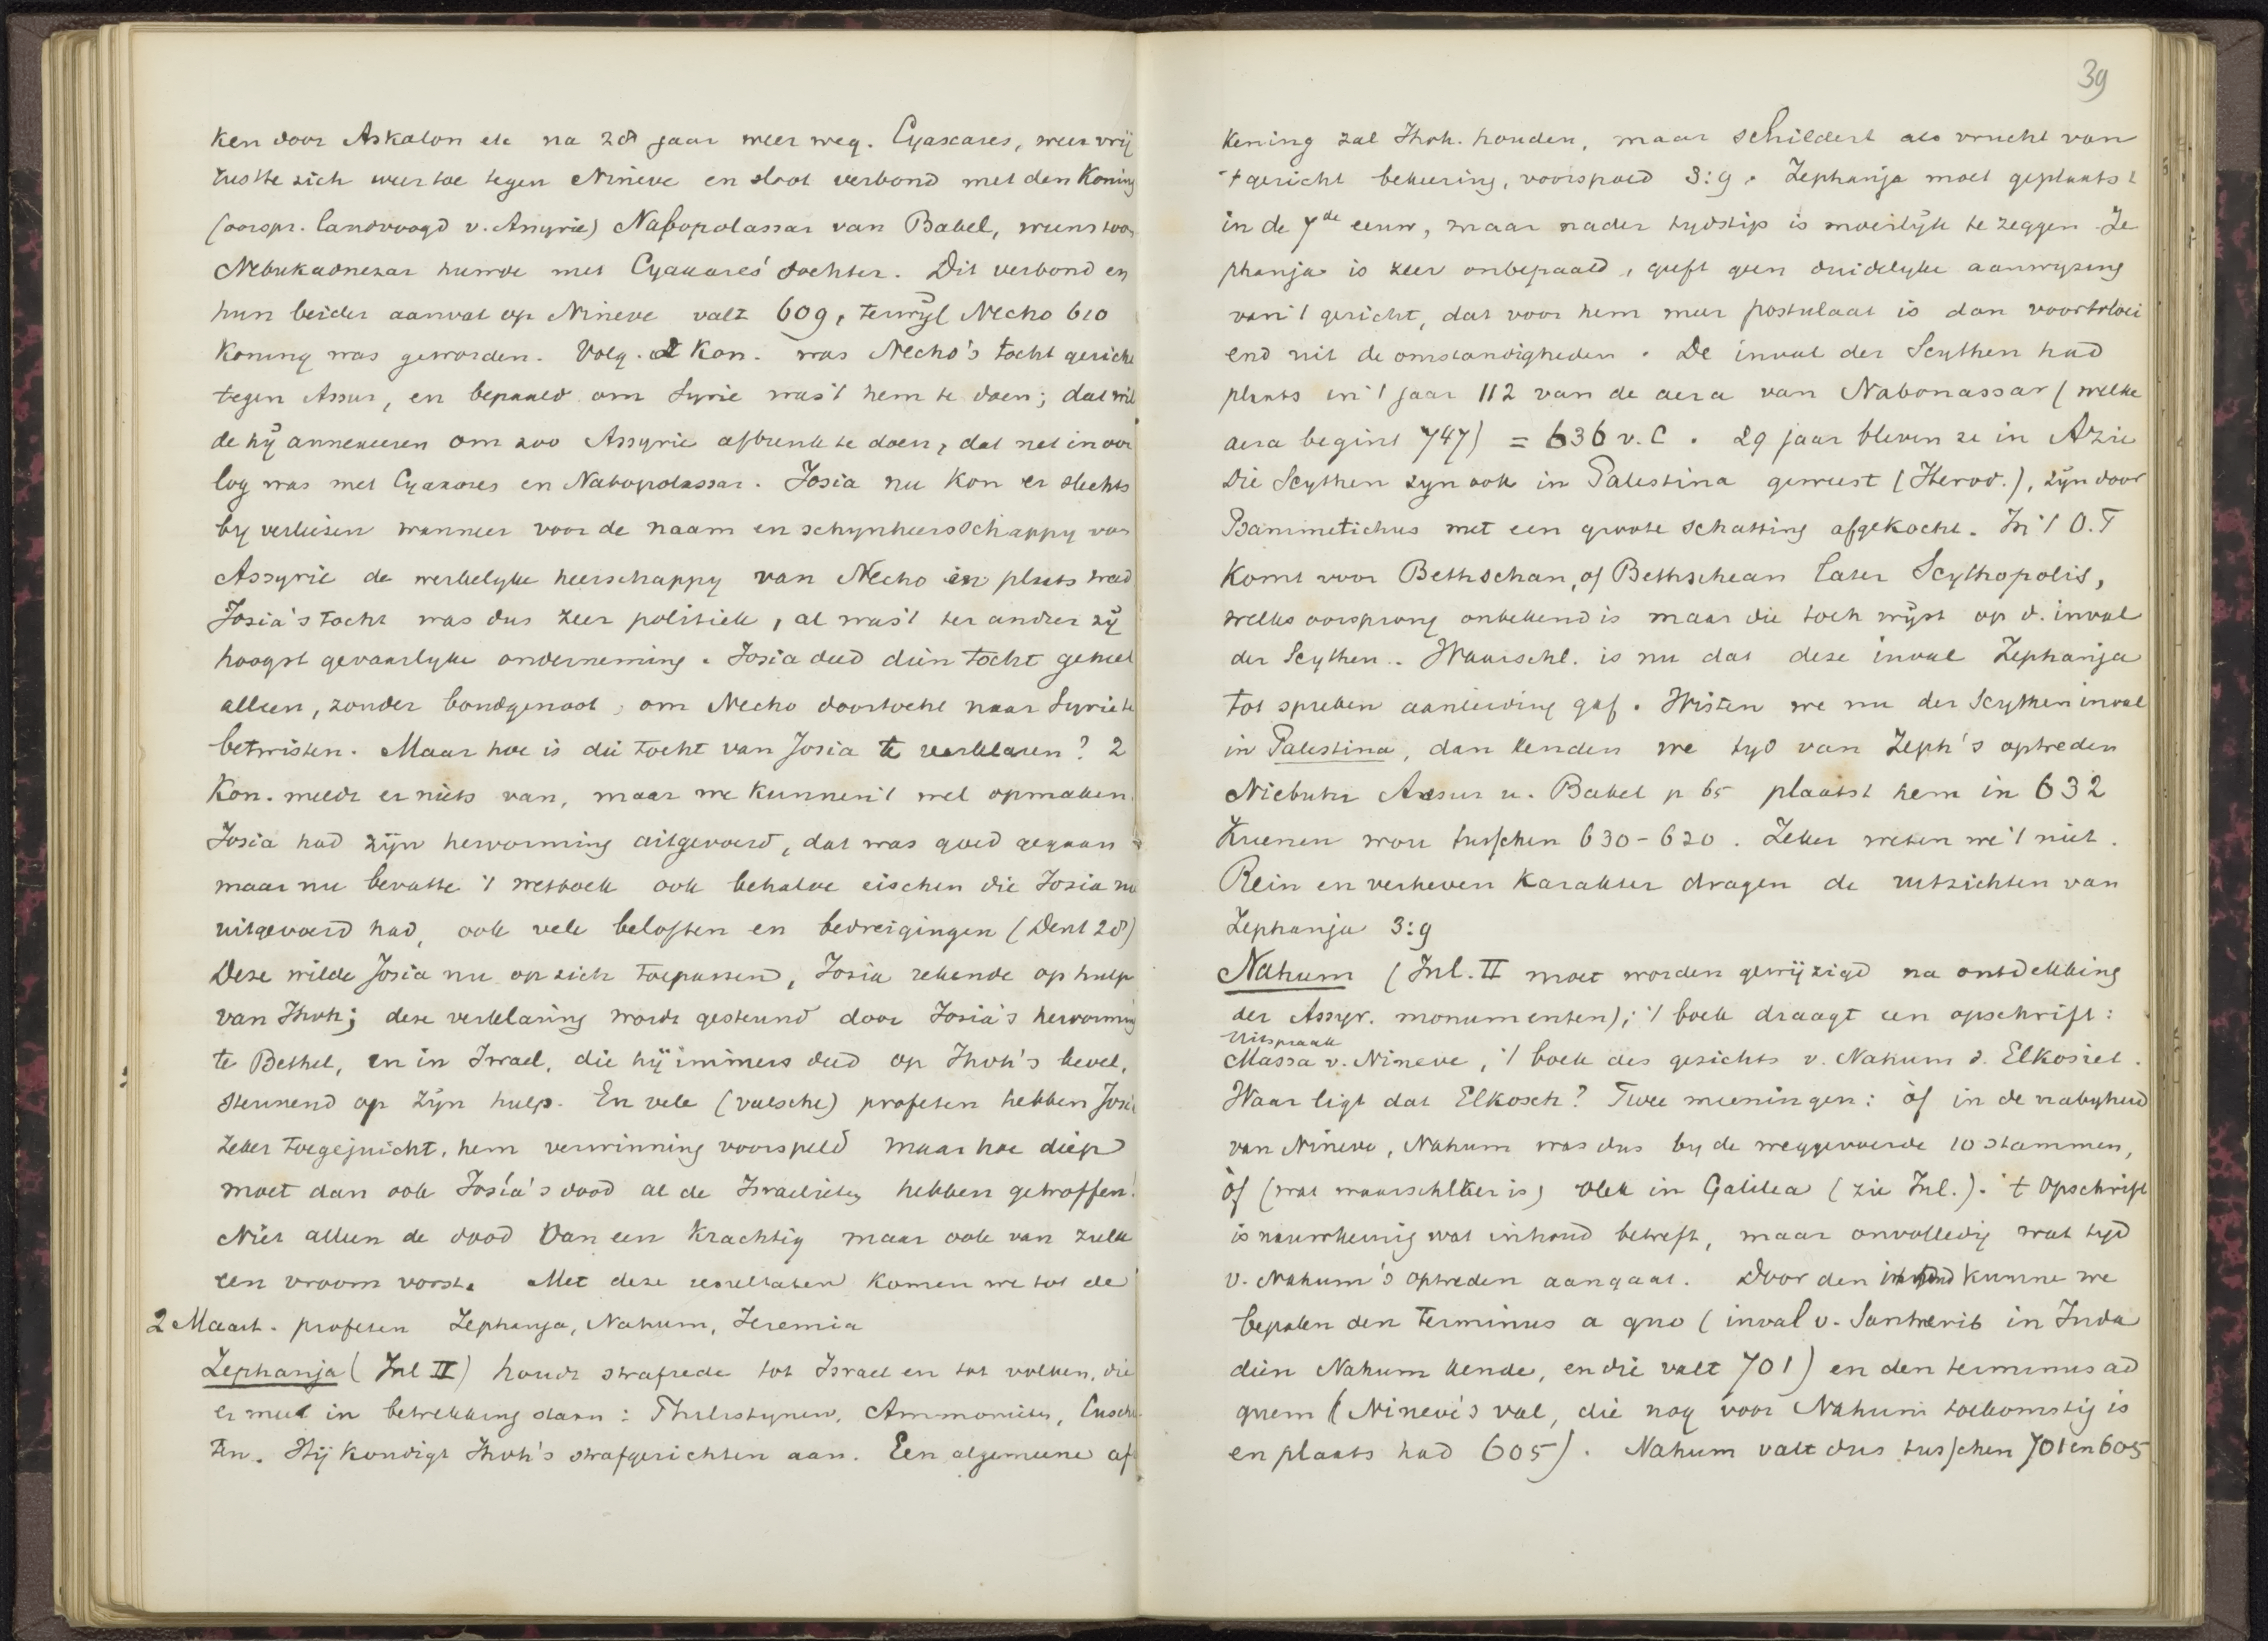 ken door Askalon etc na 28 jaar weer weg. Cyaxares, weer vrij
rustte zich weer toe tegen Nineve en sloot verbond met den Koning
(oorspr. landvoogd v. Assyrie) Nabopolassar van Babel, wiens zoon
Nebukadnezar huwde met Cyaxares' dochter. Dit verbond en
hun beider aanval op Nineve valt 609, terwijl Necho 610
Koning was geworden. Volg. 2 Kon. was Necho's tocht gericht
tegen Assur, en bepaald om Syrie was 't hem te doen; dat wil
de hij annexeeren om zoo Assyrie afbreuk te doen, dat net in oor
log was met Cyaxares en Nabopolassar. Josia nu kon er slechts
by verliezen wanneer voor de naam en schynheersschappy van
Assyrie de werkelyke heerschappy van Necho in plaats trad
Josia's tocht was dus zeer politiek, al was 't ter andere zij
hoogst gevaarlyke onderneming. Josia deed dien tocht geheel
alleen, zonder bondgenoot, om Necho doortocht naar Syrie te
betwisten. Maar hoe is die tocht van Josia te verklaren? 2
Kon. meldt er niets van, maar we kunnen 't wel opmaken.
Josia had zijn hervorming uitgevoerd, dat was goed gegaan
maar nu bevatte 't wetboek ook behalve eischen die Josia nu
uitgevoerd had, ook vele beloften en bedreigingen (Deut 28)
Deze wilde Josia nu op zich toepassen, Josia rekende op hulp
van Jhvh; deze verklaring wordt gesteund door Josia's hervorming
te Bethel, en in Israel, die hij immers deed op Jhvh's bevel,
steunend op zijn hulp. En vele (valsche) profeten hebben Josia
zeker toegejuicht, hem verwinning voorspeld maar hoe diep
moet dan ook Josía's dood al de Israelieten hebben getroffen!
Niet alleen de dood van een krachtig maar ook van zulk
een vroom vorst. Met deze resultaten komen we tot de
2 Maart. profeten Zephanja, Nahum, Jeremia
Zephanja (Inl II) houdt strafrede tot Israel en tot volken, die
er mee in betrekking staan: Philistynen, Ammonieten, Cuschie
ten. Hij kondigt Jhvh's strafgerichten aan. Een algemeene af
39
kening zal Jhvh. houden, maar schildert als vrucht van
't gericht bekeering, voorspoed 3:9. Zephanja moet geplaatst
in de 7de eeuw, maar nader tydstip is moeilijk te zeggen Ze
phanja is zeer onbepaald, geeft geen duidelyke aanwyzing
van 't gericht, dat voor hem meer postulaat is dan voortvloei
end uit de omstandigheden. De inval der Scythen had
plaats in 't jaar 112 van de aera van Nabonassar (welke
aera begint 747) = 636 v. C. 29 jaar bleven ze in Azie
Die Scythen zyn ook in Palestina geweest (Herod.), zijn door
Psammetichus met een groote schatting afgekocht. In 't O.T
komt voor Bethschan, of Bethschean later Scythopolis,
welks oorsprong onbekend is maar die toch wijst op d. inval
der Scythen. Waarschl. is nu dat deze inval Zephanja
tot spreken aanleiding gaf. Wisten we nu der Scythen inval
in Palestina, dan kenden we tyd van Zeph's optreden
Niebuhr Assur u. Babel p 65 plaatst hem in 632
Kuenen wou tusschen 630-620. Zeker weten we 't niet.
Rein en verheven karakter dragen de uitzichten van
Zephanja 3:9
Nahum (Inl. II moet worden gewijzigd na ontdekking
der Assyr. monumenten); 't boek draagt een opschrift:
Uitspraak
Massa v. Nineve, 't boek des gezichts v. Nahum d. Elkosiet.
Waar ligt dat Elkosch? Twee meeningen: òf in de nabyheid
van Nineve, Nahum was dus by de weggevoerde 10 stammen,
òf (wat waarschlker is) vlek in Galilea (zie Inl.). 't Opschrift
is nauwkeurig wat inhoud betreft, maar onvolledig wat tyd
v. Nahum's optreden aangaat. Door den inhoud kunne we
bepalen den terminus a quo (inval v. Sanherib in Juda
dien Nahum kende, en die valt 701) en den terminus ad
quem (Nineve's val, die nog voor Nahum toekomstig is
en plaats had 605). Nahum valt dus tusschen 701 en 605